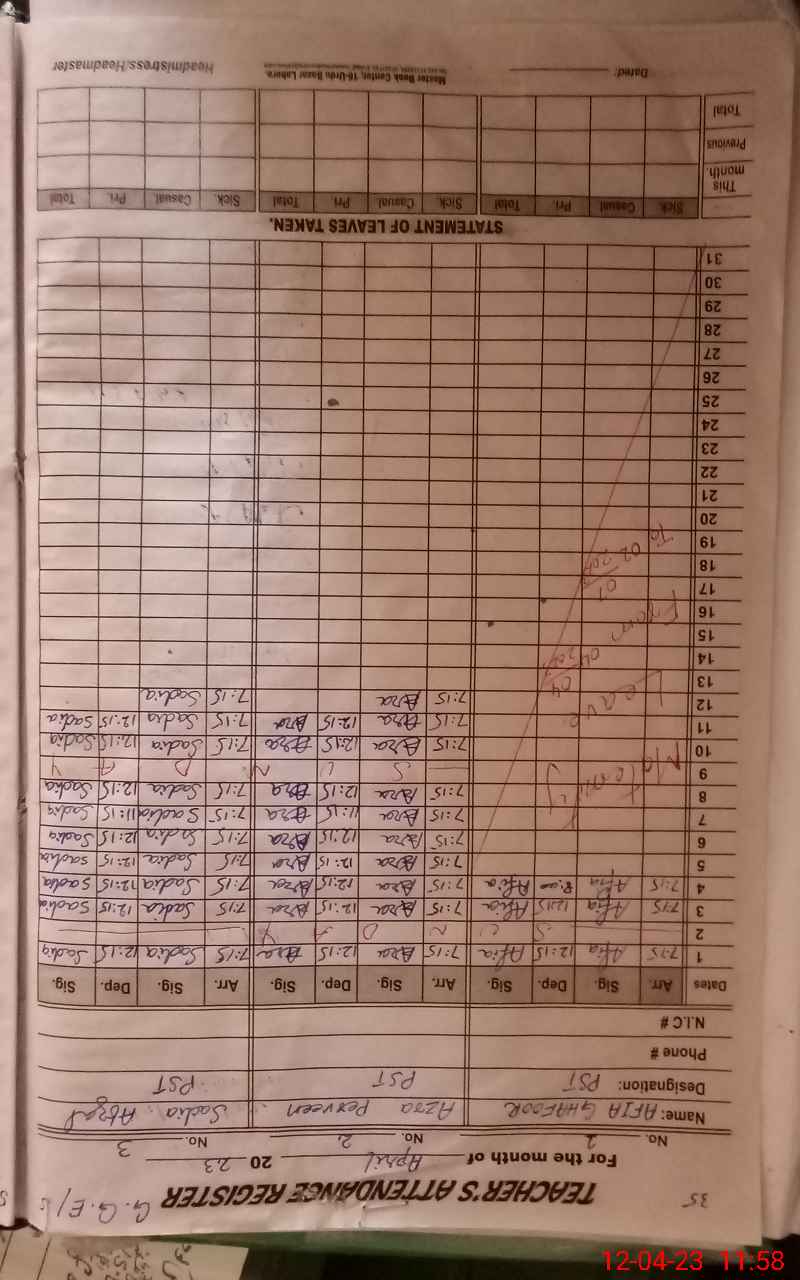 35 TEACHER'S ATTENDANCE REGISTER G.G.E/
For the month of April 20 23
No. 1 No. 2 No. 3
Name: AFIA GHAFOOR AZra Perveen Sadia Afzal
Designation: PST PST PST
Phone #
N.I.C #
Dates Arr. Sig. Dep. Sig. Arr. Sig. Dep. Sig. Arr. Sig. Dep. Sig.
1 7:15 Afia 12:15 Afia 7:15 Azra 12:15 Azra 7:15 Sadia 12:15 Sadia
2 S U N D A Y
3 7:15 Afia 12:15 Afia 7:15 Azra 12:15 Azra 7:15 Sadia 12:15 Sadia
4 7:15 Afia Afia 7:15 Azra 12:15 Azra 7:15 Sadia 12:15 Sadia
5 7:15 Azra 12:15 Azra 7:15 Sadia 12:15 Sadia
6 7:15 Azra 12:15 Azra 7:15 Sadia 12:15 Sadia
7 7:15 Azra 11:15 Azra 7:15 Sadia 11:15 Sadia
8 7:15 Azra 12:15 Azra 7:15 Sadia 12:15 Sadia
9 S U N D A Y
10 7:15 Azra 12:15 Azra 7:15 Sadia 12:15 Sadia
11 7:15 Azra 12:15 Azra 7:15 Sadia 12:15 Sadia
12 7:15 Azra 7:15 Sadia
Maternity Leave
From
To
13
14
15
16
17
18
19
20
21
22
23
24
25
26
27
28
29
30
31
STATEMENT OF LEAVES TAKEN.
Sick. Casual Pri. Total Sick. Casual Pri Total Sick. Casual Pri. Total
This month.
Previous
Total
Dated: Master Book Center, 16-Urdu Bazar Lahore. Headmistress/Headmaster
12-04-23 11:58